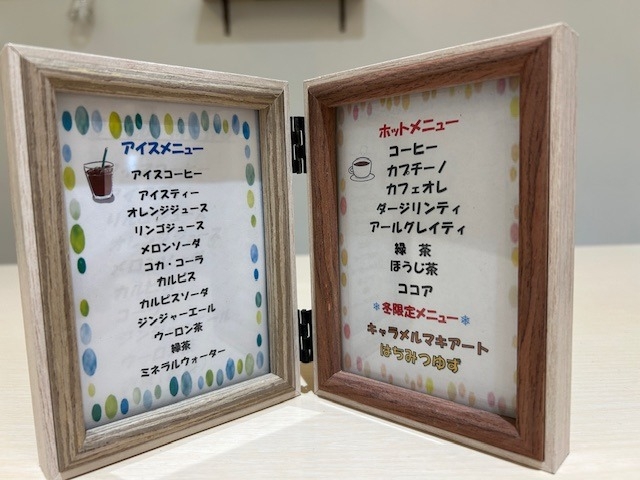 アイスメニュー
アイスコーヒー
アイスティー
オレンジジュース
リンゴジュース
メロンソーダ
コカ・コーラ
カルピス
カルピスソーダ
ジンジャーエール
ウーロン茶
緑茶
ミネラルウォーター
ホットメニュー
コーヒー
カプチーノ
カフェオレ
ダージリンティ
アールグレイティ
緑 茶
ほうじ茶
ココア
❄冬限定メニュー❄
キャラメルマキアート
はちみつゆず